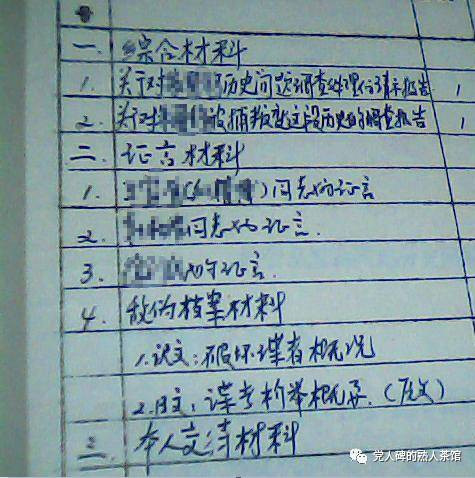 一. 综合材料
1. 关于对历史问题调查处理的请示报告 1
2. 关于对被捕叛变这段历史的调查报告 1
二. 证言材料
1. ( )同志的证言
2. 同志的证言.
3. 的证言.
4 敌伪档案材料
1.译文：破坏谍者概况
2.日文：谍者检举概.(原文)
三. 本人交待材料
党人碑的熟人茶馆